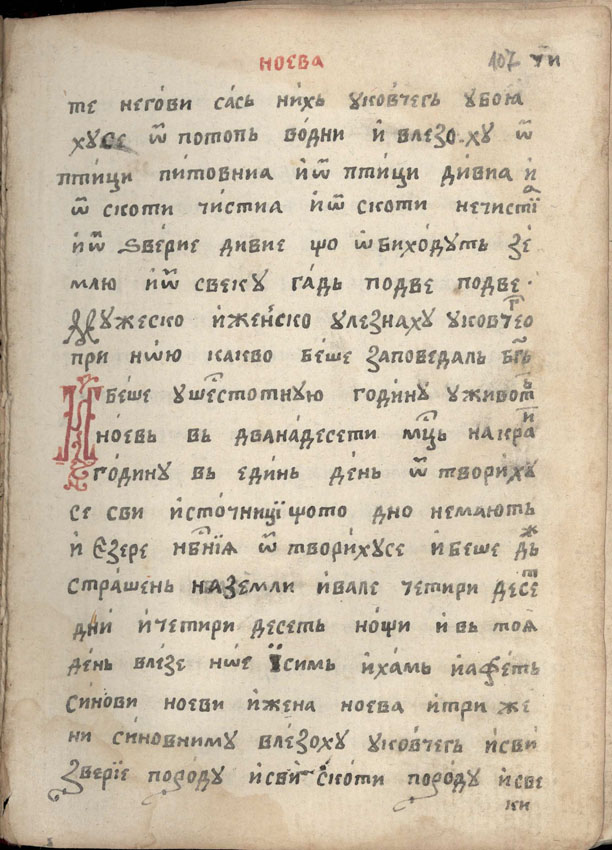 НОЕВА 107 у҃и
те него́ви са́сь ни́хь уковчегь убоꙗ
хусе ѿ потопь во́дни и҆ влезо ху ѿ
пти́ци пи́товниа и҆ѿ пти́ци ди́виа и҆
ѿ скоти чи́стиа и҆ѿ скоти нечистїа
и҆ѿ ѕве́рие дивие що ѡ҆биходуть зе́
млю и҆ѿ свеку га́дь подве подве ·
Мужеско и҆же́нско улезнаху уковчего
при нѡ́ю какво бе́ше заповедаль бг҃ь
И бе́ше ушестотную годи́ну уживоть
ноевь вь двана́десети мц҃ь накраи
го́дину вь еди́нь де́нь ѿ твори́ху
се сви и҆сто́чницї щото дно немають
и҆ є҆зере нбⷭ҇нїѧ ѿ твори́хусе и҆ беше дъжь
стра́шень наземли и҆вале четири десеть
дни́ и҆четири десеть но́щи и҆ вь тоѧ
де́нь влезе нѡ́е їси́мь и҆ха́мь и҆афеть
си́нови ноеви и҆жена ноева и҆три же
ни си́новниму вле́зоху уковчегь и҆сви́
зверїе поро́ду и҆сви́ скоти поро́ду и҆све
ки